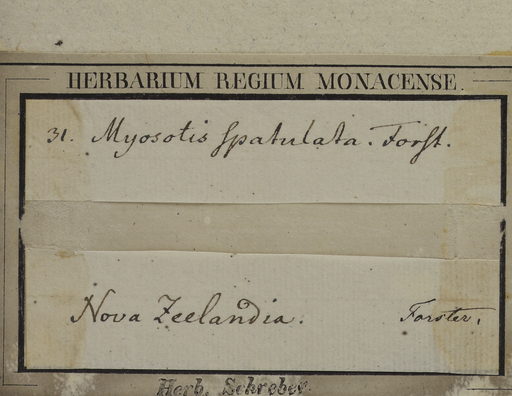 HERBARIUM REGIUM MONACENSE.
31. Myosotis spatulata. Forst.
Nova Zeelandia. Forster.
Herb. Schreber.